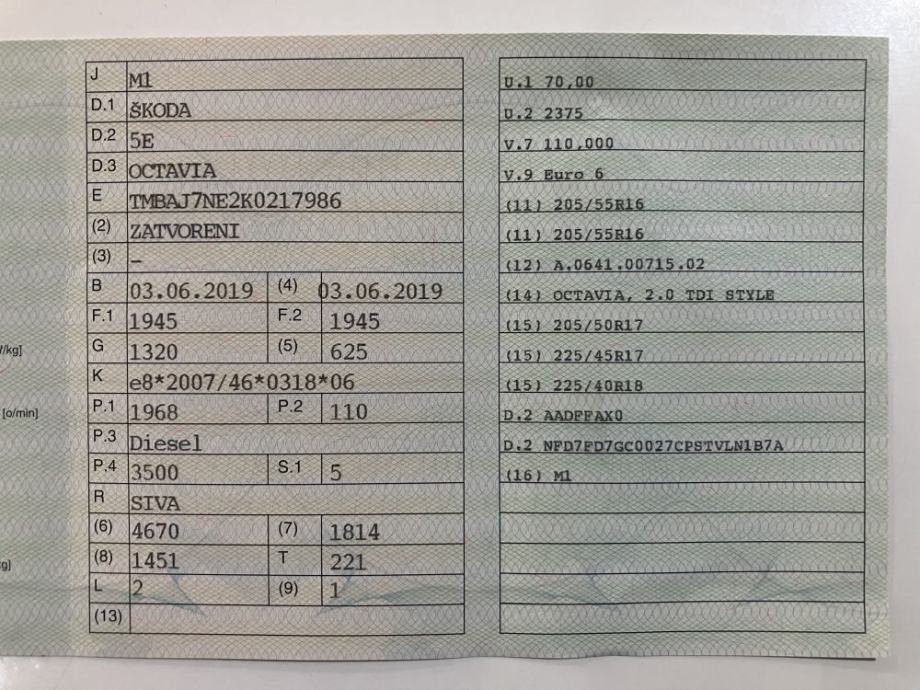 J M1
D.1 ŠKODA
D.2 5E
D.3 OCTAVIA
E TMBAJ7NE2K0217986
(2) ZATVORENI
(3) –
B 03.06.2019 (4) 03.06.2019
F.1 1945 F.2 1945
G 1320 (5) 625
/kg]
K e8*2007/46*0318*06
P.1 1968 P.2 110
[o/min]
P.3 Diesel
P.4 3500 S.1 5
R SIVA
(6) 4670 (7) 1814
(8) 1451 T 221
g]
L 2 (9) 1
(13)
U.1 70,00
U.2 2375
V.7 110,000
V.9 Euro 6
(11) 205/55R16
(11) 205/55R16
(12) A.0641.00715.02
(14) OCTAVIA, 2.0 TDI STYLE
(15) 205/50R17
(15) 225/45R17
(15) 225/40R18
D.2 AADFFAX0
D.2 NFD7FD7GC0027CPSTVLN1B7A
(16) M1